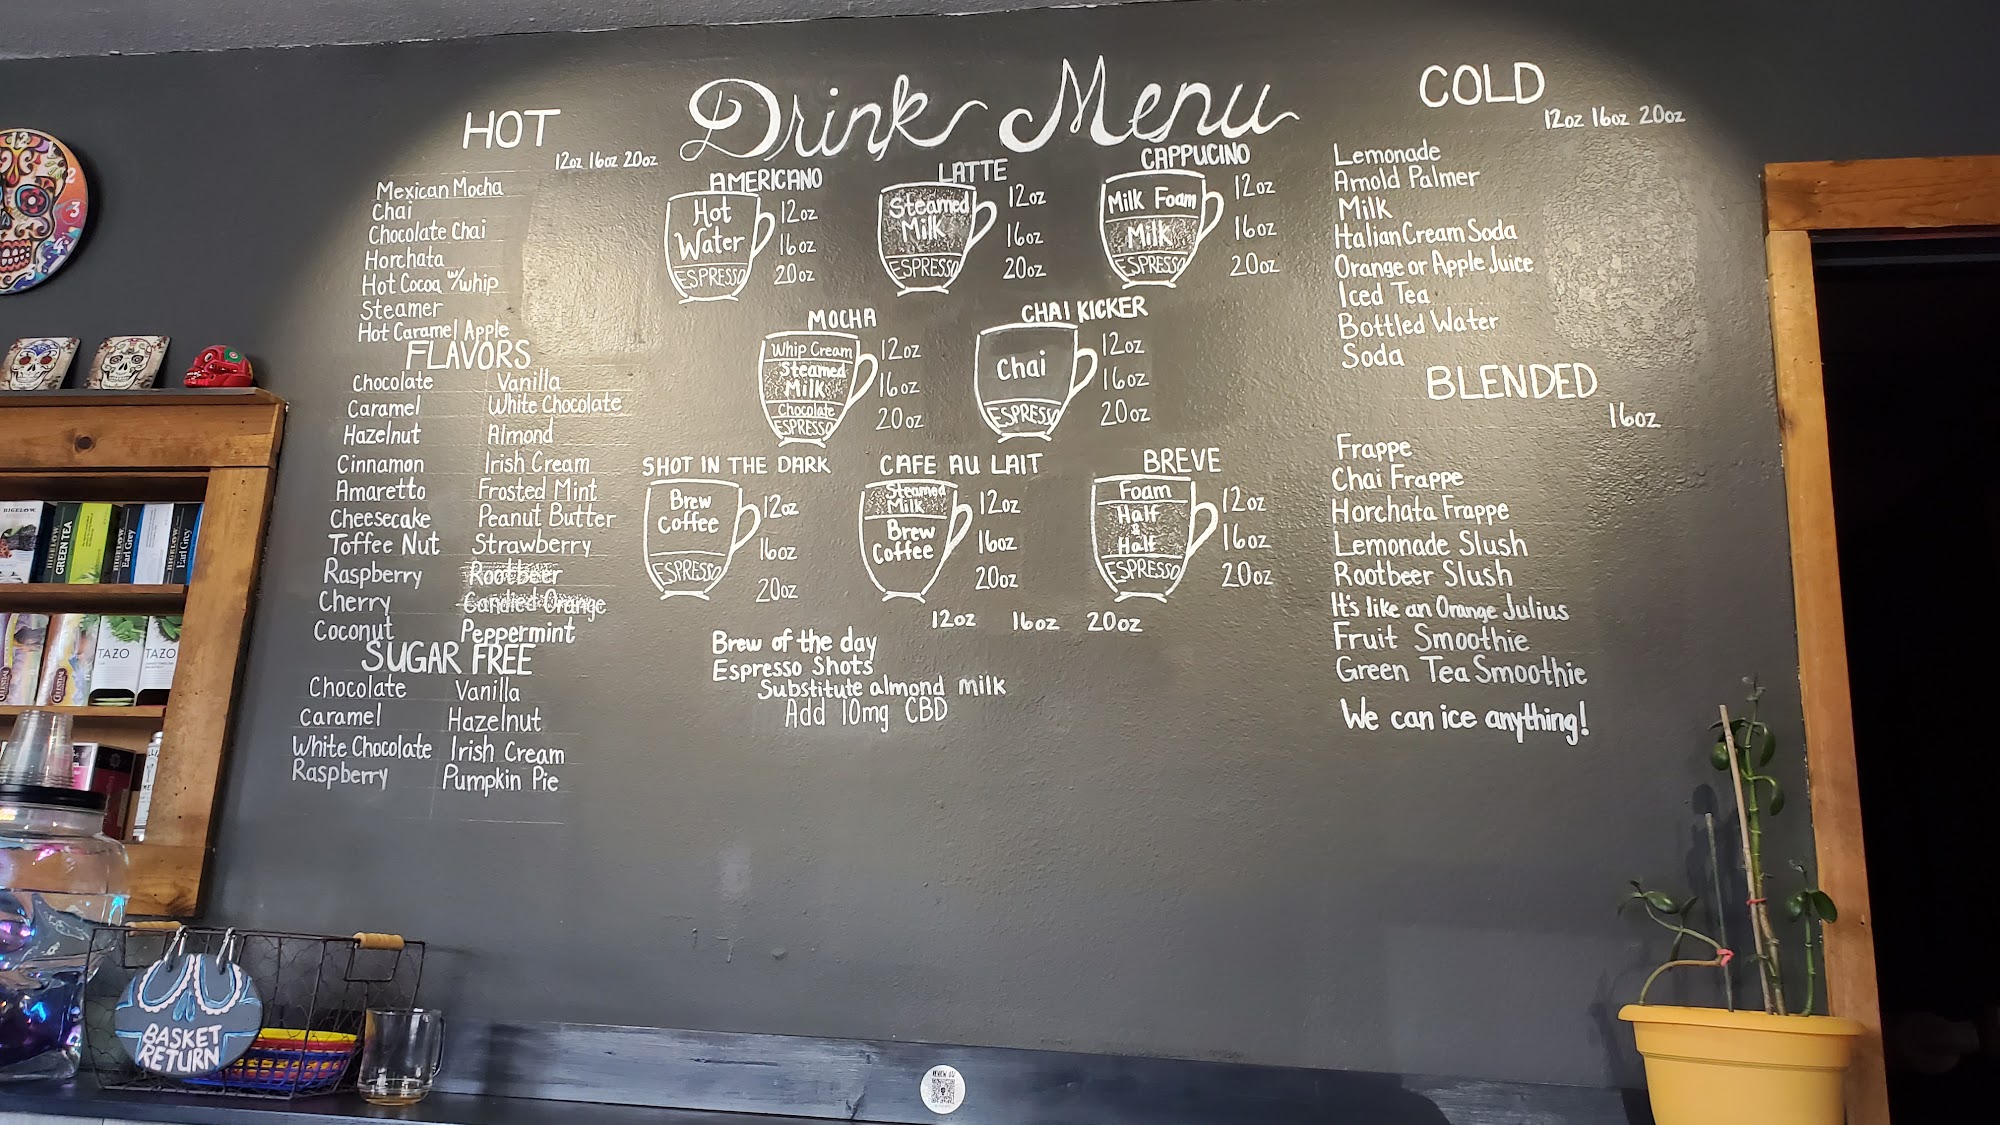 Drink Menu
HOT
12oz 16oz 20oz
Mexican Mocha
Chai
Chocolate Chai
Horchata
Hot Cocoa w/whip
Steamer
Hot Caramel Apple
FLAVORS
Chocolate Vanilla
Caramel White Chocolate
Hazelnut Almond
Cinnamon Irish Cream
Amaretto Frosted Mint
Cheesecake Peanut Butter
Toffee Nut Strawberry
Raspberry Rootbeer
Cherry Candied Orange
Coconut Peppermint
SUGAR FREE
Chocolate Vanilla
Caramel Hazelnut
White Chocolate Irish Cream
Raspberry Pumpkin Pie
AMERICANO
Hot
Water
ESPRESSO
12oz
16oz
20oz
LATTE
Steamed
Milk
ESPRESSO
12oz
16oz
20oz
CAPPUCINO
Milk Foam
Milk
ESPRESSO
12oz
16oz
20oz
MOCHA
Whip Cream
Steamed
Milk
Chocolate
ESPRESSO
12oz
16oz
20oz
CHAI KICKER
Chai
ESPRESSO
12oz
16oz
20oz
SHOT IN THE DARK
Brew
Coffee
ESPRESSO
12oz
16oz
20oz
CAFE AU LAIT
Steamed
Milk
Brew
Coffee
12oz
16oz
20oz
BREVE
Foam
Half
&
Half
ESPRESSO
12oz
16oz
20oz
12oz 16oz 20oz
Brew of the day
Espresso Shots
Substitute almond milk
Add 10mg CBD
COLD
12oz 16oz 20oz
Lemonade
Arnold Palmer
Milk
Italian Cream Soda
Orange or Apple Juice
Iced Tea
Bottled Water
Soda
BLENDED
16oz
Frappe
Chai Frappe
Horchata Frappe
Lemonade Slush
Rootbeer Slush
It's like an Orange Julius
Fruit Smoothie
Green Tea Smoothie
We can ice anything!
12
2
3
4
BIGELOW
BIGELOW
GREEN TEA
BIGELOW
Earl Grey
BIGELOW
Earl Grey
CELESTIAL
TAZO
TAZO
BASKET
RETURN
REVIEW US